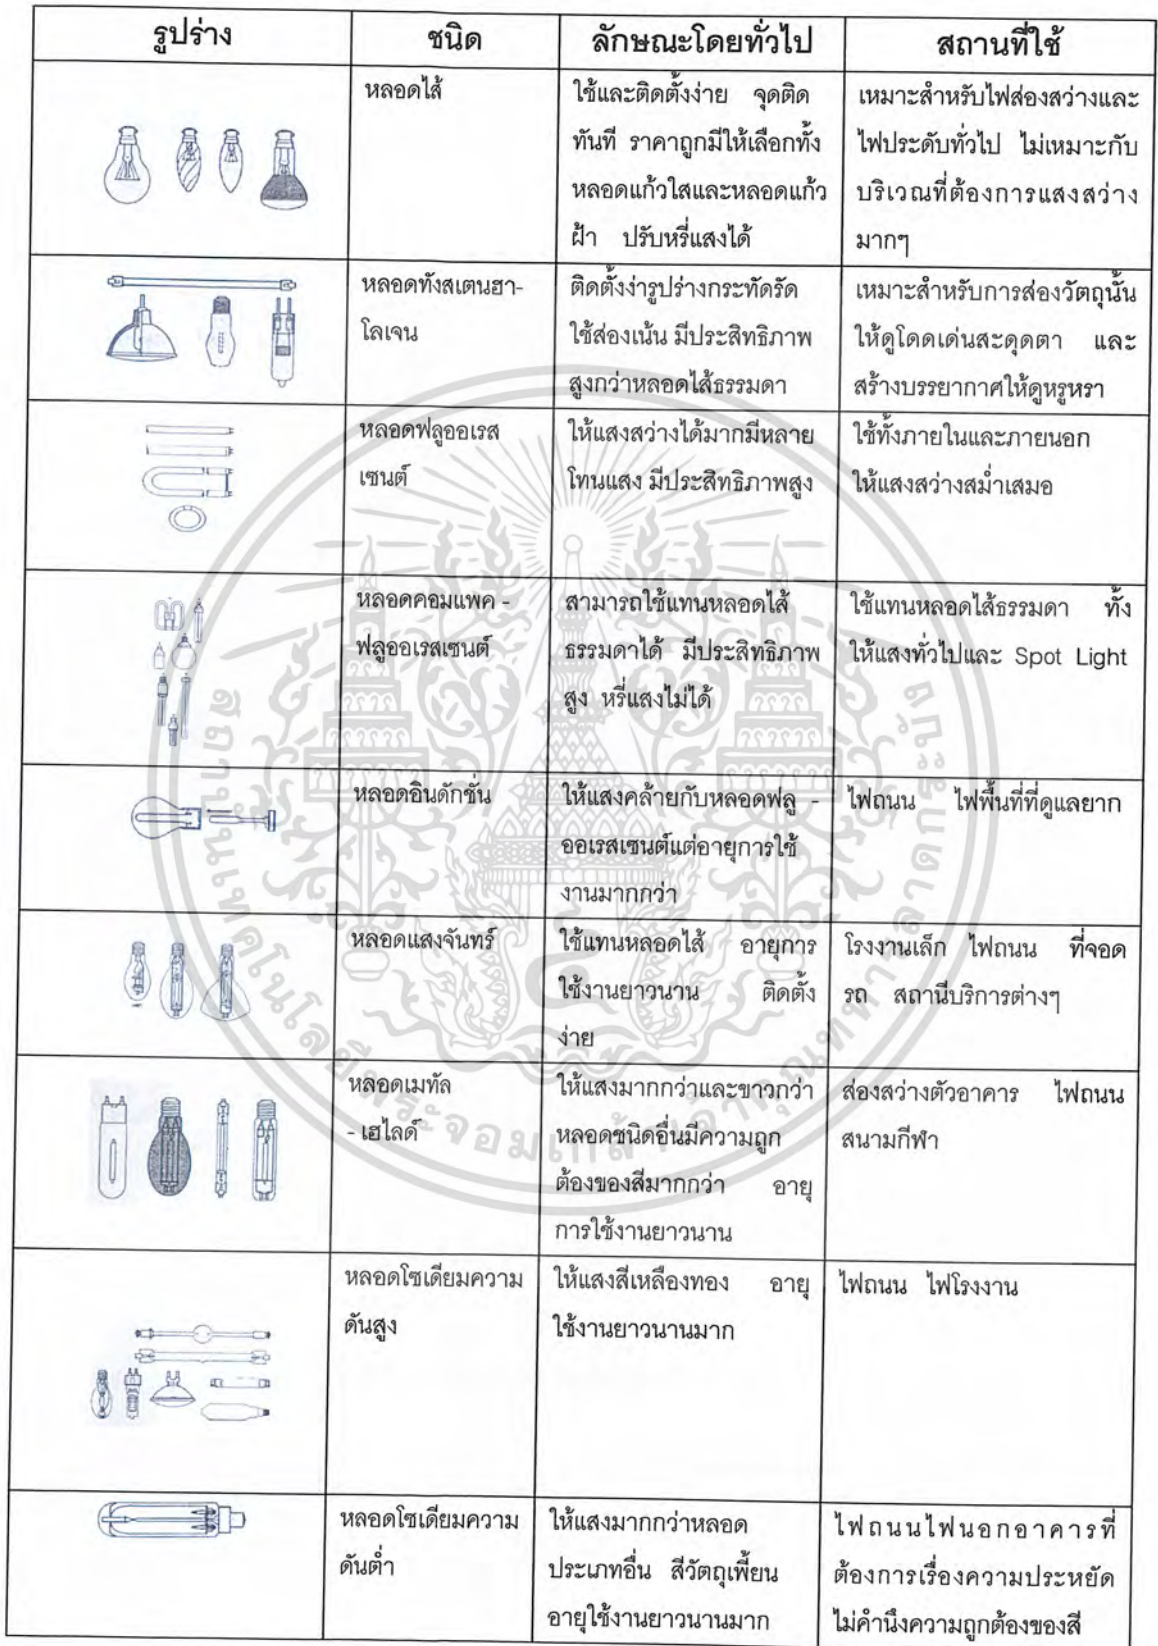 รูปร่าง ชนิด ลักษณะโดยทั่วไป สถานที่ใช้
หลอดไส้
ใช้และติดตั้งง่าย จุดติด
ทันที ราคาถูกมีให้เลือกทั้ง
หลอดแก้วใสและหลอดแก้ว
ฝ้า ปรับหรี่แสงได้
เหมาะสำหรับไฟส่องสว่างและ
ไฟประดับทั่วไป ไม่เหมาะกับ
บริเวณที่ต้องการแสงสว่าง
มากๆ
หลอดทังสเตนฮา-
โลเจน
ติดตั้งง่ารูปร่างกระทัดรัด
ใช้ส่องเน้น มีประสิทธิภาพ
สูงกว่าหลอดไส้ธรรมดา
เหมาะสำหรับการส่องวัตถุนั้น
ให้ดูโดดเด่นสะดุดตา และ
สร้างบรรยากาศให้ดูหรูหรา
หลอดฟลูออเรส
เซนต์
ให้แสงสว่างได้มากมีหลาย
โทนแสง มีประสิทธิภาพสูง
ใช้ทั้งภายในและภายนอก
ให้แสงสว่างสม่ำเสมอ
หลอดคอมแพค -
ฟลูออเรสเซนต์
สามารถใช้แทนหลอดไส้
ธรรมดาได้ มีประสิทธิภาพ
สูง หรี่แสงไม่ได้
ใช้แทนหลอดไส้ธรรมดา ทั้ง
ให้แสงทั่วไปและ Spot Light
หลอดอินดักชั่น
ให้แสงคล้ายกับหลอดฟลู -
ออเรสเซนต์แต่อายุการใช้
งานมากกว่า
ไฟถนน ไฟพื้นที่ที่ดูแลยาก
หลอดแสงจันทร์
ใช้แทนหลอดไส้ อายุการ
ใช้งานยาวนาน ติดตั้ง
ง่าย
โรงงานเล็ก ไฟถนน ที่จอด
รถ สถานีบริการต่างๆ
หลอดเมทัล
- เฮไลด์
ให้แสงมากกว่าและขาวกว่า
หลอดชนิดอื่นมีความถูก
ต้องของสีมากกว่า อายุ
การใช้งานยาวนาน
ส่องสว่างตัวอาคาร ไฟถนน
สนามกีฬา
หลอดโซเดียมความ
ดันสูง
ให้แสงสีเหลืองทอง อายุ
ใช้งานยาวนานมาก
ไฟถนน ไฟโรงงาน
หลอดโซเดียมความ
ดันต่ำ
ให้แสงมากกว่าหลอด
ประเภทอื่น สีวัตถุเพี้ยน
อายุใช้งานยาวนานมาก
ไฟถนนไฟนอกอาคารที่
ต้องการเรื่องความประหยัด
ไม่คำนึงความถูกต้องของสี
สถาบันเทคโนโลยีพระจอมเกล้าเจ้าคุณทหารลาดกระบัง